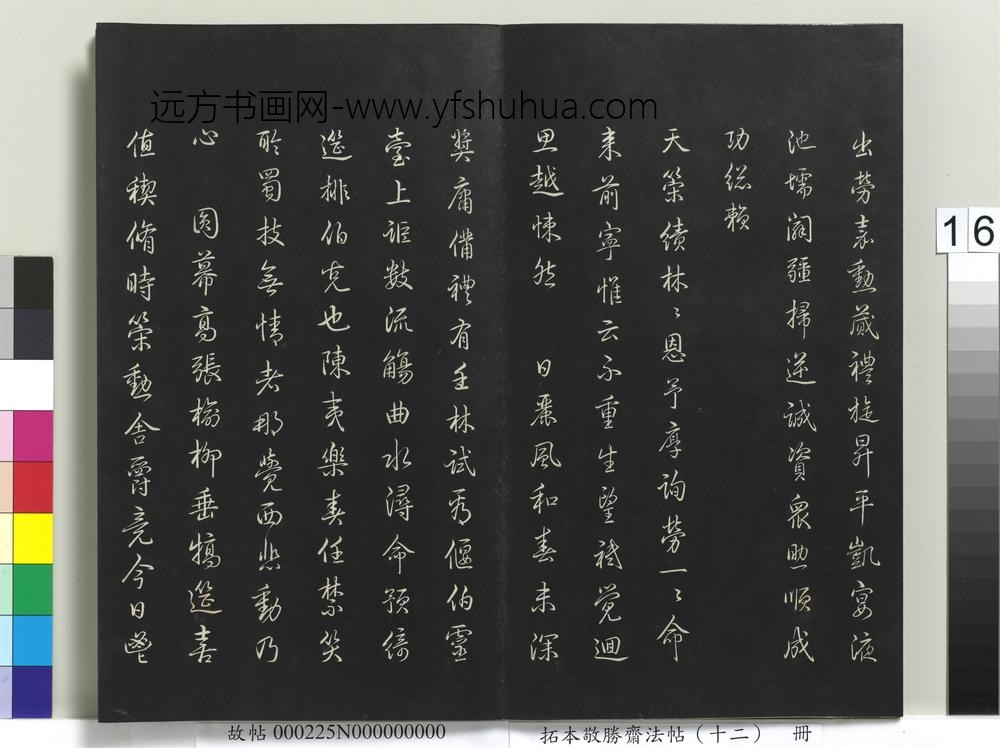 远方书画网-www.yfshuhua.com
出勞嘉勳蕆禮旋昇平凱宴液
池壖闢疆掃逆誠資眾助順成
功総賴
天策績林〻恩予厚詢勞一〻命
来前寧惟云不重生望祗覺迴
思越悚然 日麗風和春未深
奬庸備禮有壬林試看偃伯靈
臺上詎數流觴曲水潯命預綺
筵排伯克也陳夷樂奏任禁笑
聆蜀技無情者那覺西悲動乃
心 圓幕高張榆柳垂犒筵喜
值稧脩時策勳舍爵竟今日鬯
16
故帖 000225N000000000
拓本敬勝齋法帖（十二） 冊